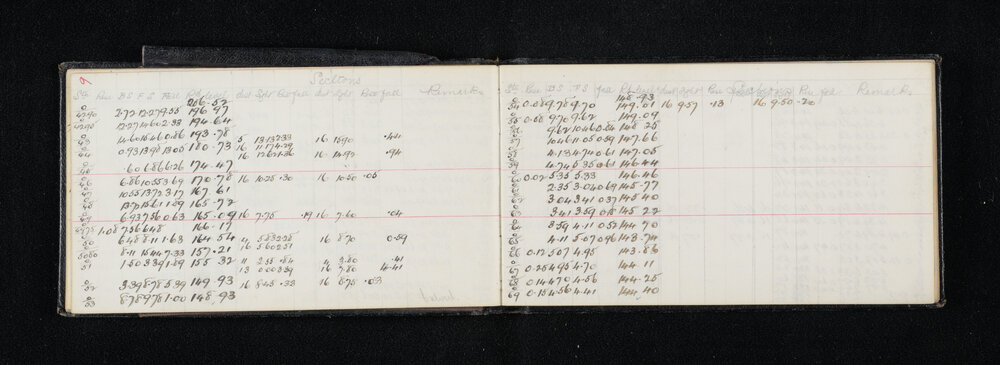 9
Sections
Sta Rise B S F S Fall R Level dist Sght Rise fall dist Sght Rise fall Remarks
206.52
4290 2.72 12.27 9.55 196.97
4290 12.27 14.60 2.33 194.64
43 14.60 15.46 0.86 193.78
44 0.93 13.98 13.05 180.73
16 12.62 1.36 16 14.92 .94
45 .60 6.86 6.26 174.47
46 6.86 10.55 3.69 170.78 16 10.25 .30 16 10.50 .05
47 10.55 13.72 3.17 167.61
48 13.72 15.61 1.89 165.72
49 6.93 7.56 0.63 165.09 16 7.75 .19 16 7.60 .04
4975 1.08 7.56 6.48 166.17
50 6.48 8.11 1.63 164.54 16 8.70 0.59
16 5.60 2.51
5050 8.11 15.44 7.33 157.21
51 1.50 3.39 1.89 155.32 11 2.55 .84 4 2.80 .41
13 0.00 3.39 16 7.80 4.41
52 3.39 8.78 5.39 149.93 16 8.45 .33 16 8.75 .03
53 8.78 9.78 1.00 148.93
Sta Rise B S F S fall R Level dist Sght Rise fall Remarks
148.93
54 0.08 9.78 9.70 149.01 16 9.57 .13 16 9.50 .20
55 0.08 9.70 9.62 149.09
9.62 10.46 0.84 148.25
10.46 11.05 0.59 147.66
4.13 4.74 0.61 147.05
4.74 5.35 0.61 146.44
0.02 5.35 5.33 146.46
2.35 3.04 0.69 145.77
3.04 3.41 0.37 145.40
3.41 3.59 0.18 145.22
64 3.59 4.11 0.52 144.70
65 4.11 5.07 0.96 143.74
66 0.12 5.07 4.95 143.86
67 0.25 4.95 4.70 144.11
68 0.14 4.70 4.56 144.25
69 0.15 4.56 4.41 144.40